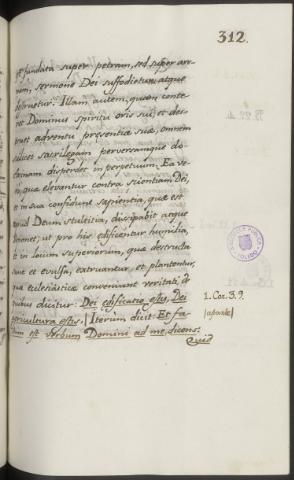 312.
fundata super petram, sed super are-
nam, sermone Dei suffodietur, atque
destruetur. Illam autem, quem conte-
ret Dominus Spiritu oris sui, et des-
truet adventu presentiæ suæ, omnem
scilicet sacrilegam perversamque do-
ctrinam disperdet in perpetuum. Ea ve-
ro, quæ elevantur contra scientiam Dei,
et in sua confidunt sapientia, quæ est
apud Deum stultitia, dissipabit atque
; ut pro his edificentur humilia,
et in locum superiorum, quæ destructa
sunt et evulsa, extruantur, et plantentur,
quæ ecclesiasticæ conveniunt veritati,
quibus dicitur: Dei edificatio estis, Dei
agricultura estis. | Iterùm dicit: Et fa-
ctum est Verbum Domini ad me, dicens:
Quid
1. Cor. 3. 9.
|aparte|
TOLEDO